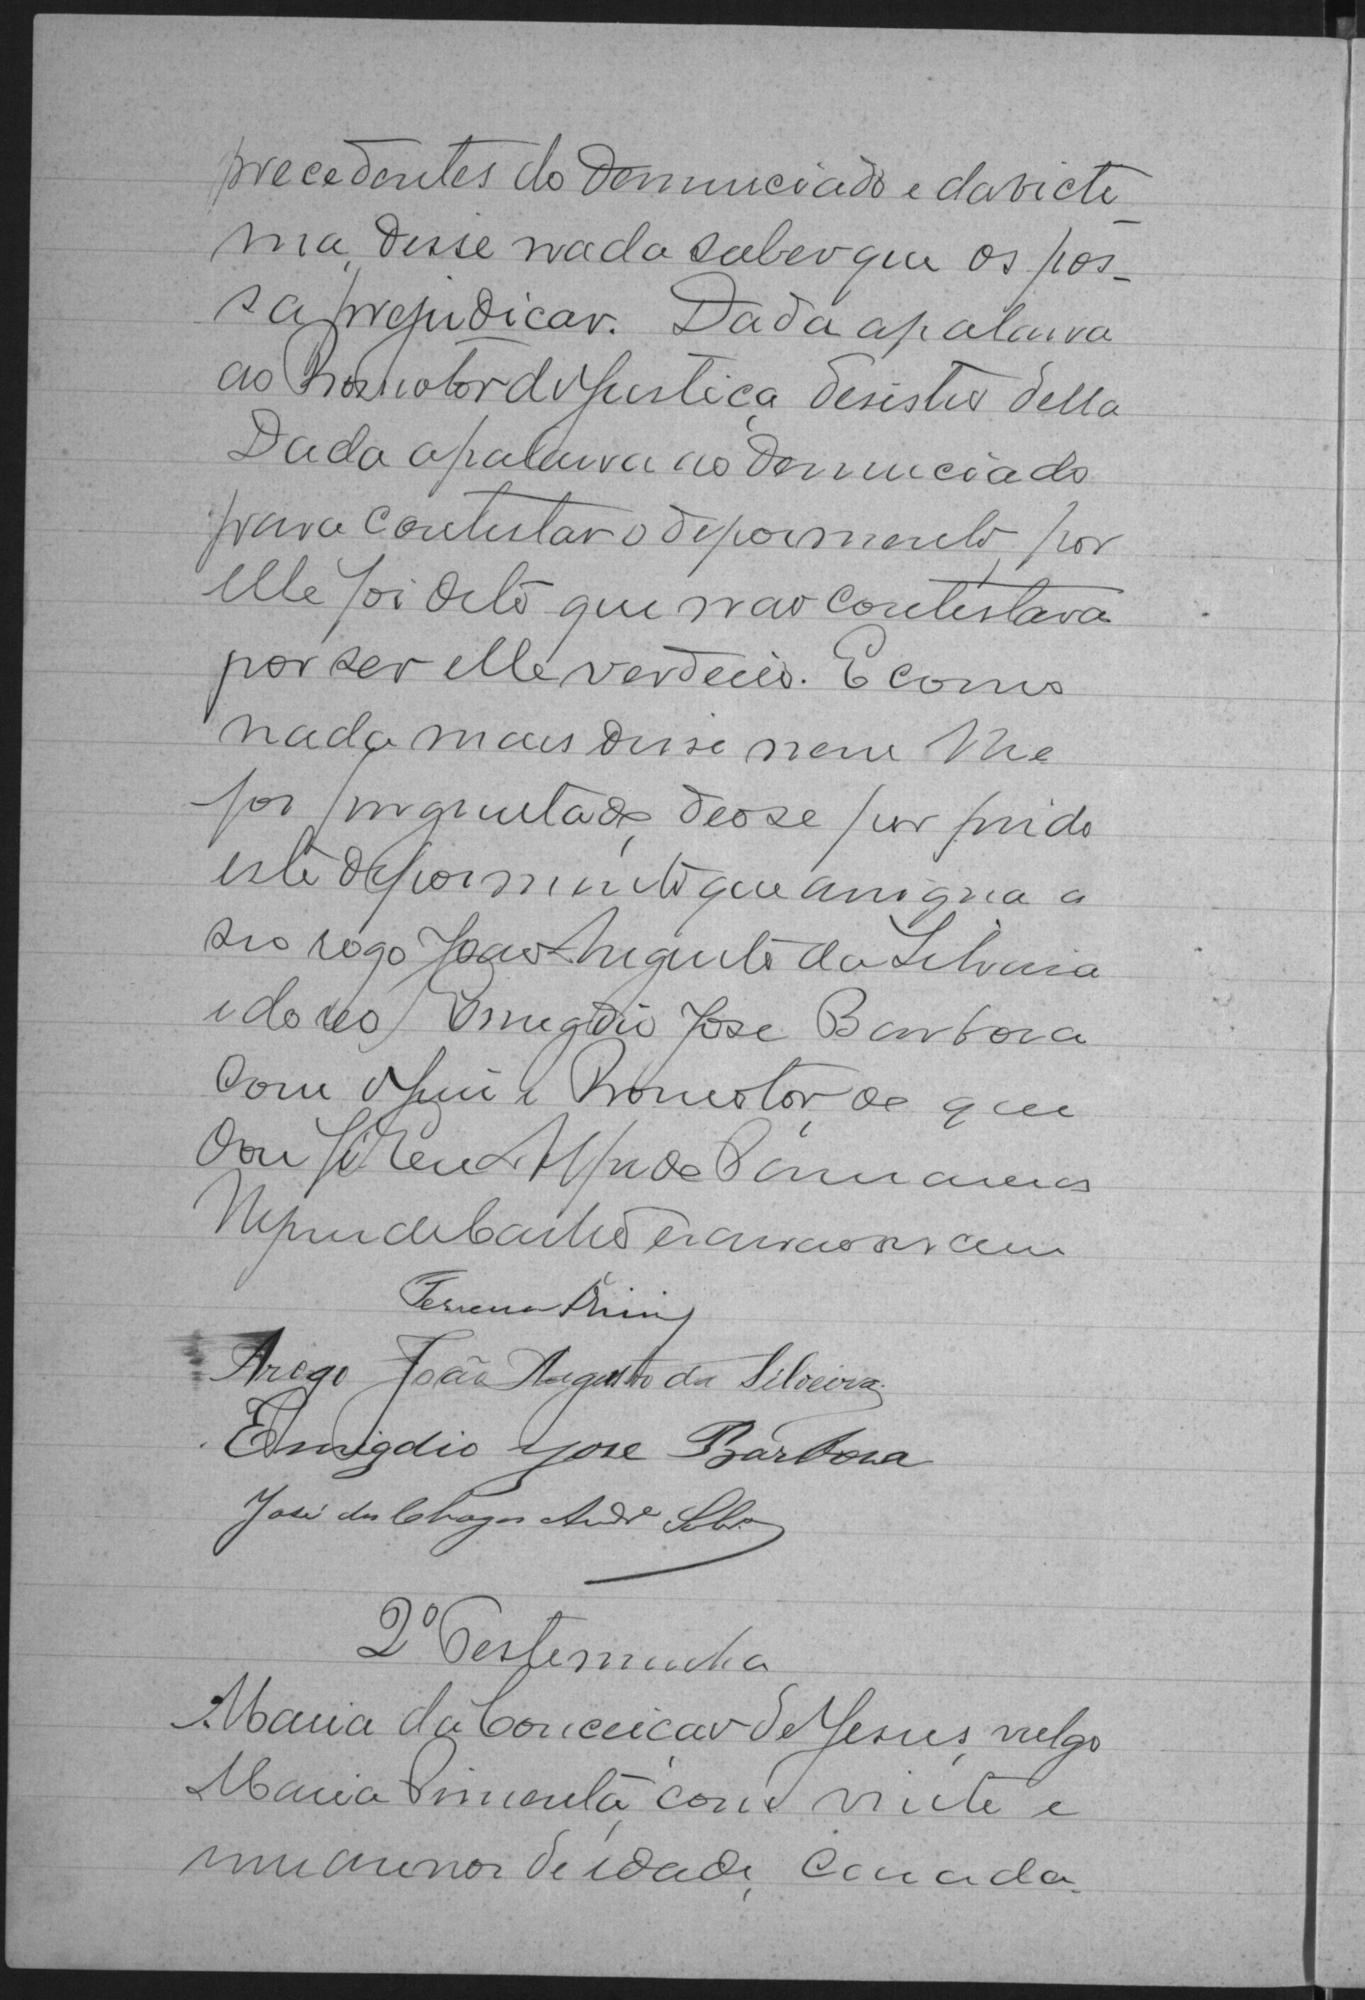 precedentes do denunciado e da victi-
ma, disse nada saber que os pos-
sa prejudicar. Dada a palavra
ao Promotor de Justiça, desistio della
Dada a palavra ao denunciado
para contestar o depoimento, por
elle foi dito que não contestava
por ser elle verdeiro. E como
nada mais disse nem lhe
foi preguntado, deo se por findo
este depoimento que assigna a
seo rogo João Augusto da Silveira
e do reo Emigdio José Barbosa
com o Juiz e Promotor, de que
dou fé. Eu
escrivão o escrevi
Ferreira
Arogo João Augusto da Silveira
Emigdio Jose Barbosa
José das Chagas André Silva
2º Testemunha
Maria da Conceicão de Jesus, vulgo
Maria Pimenta, com vinte e
um annos de idade, casada